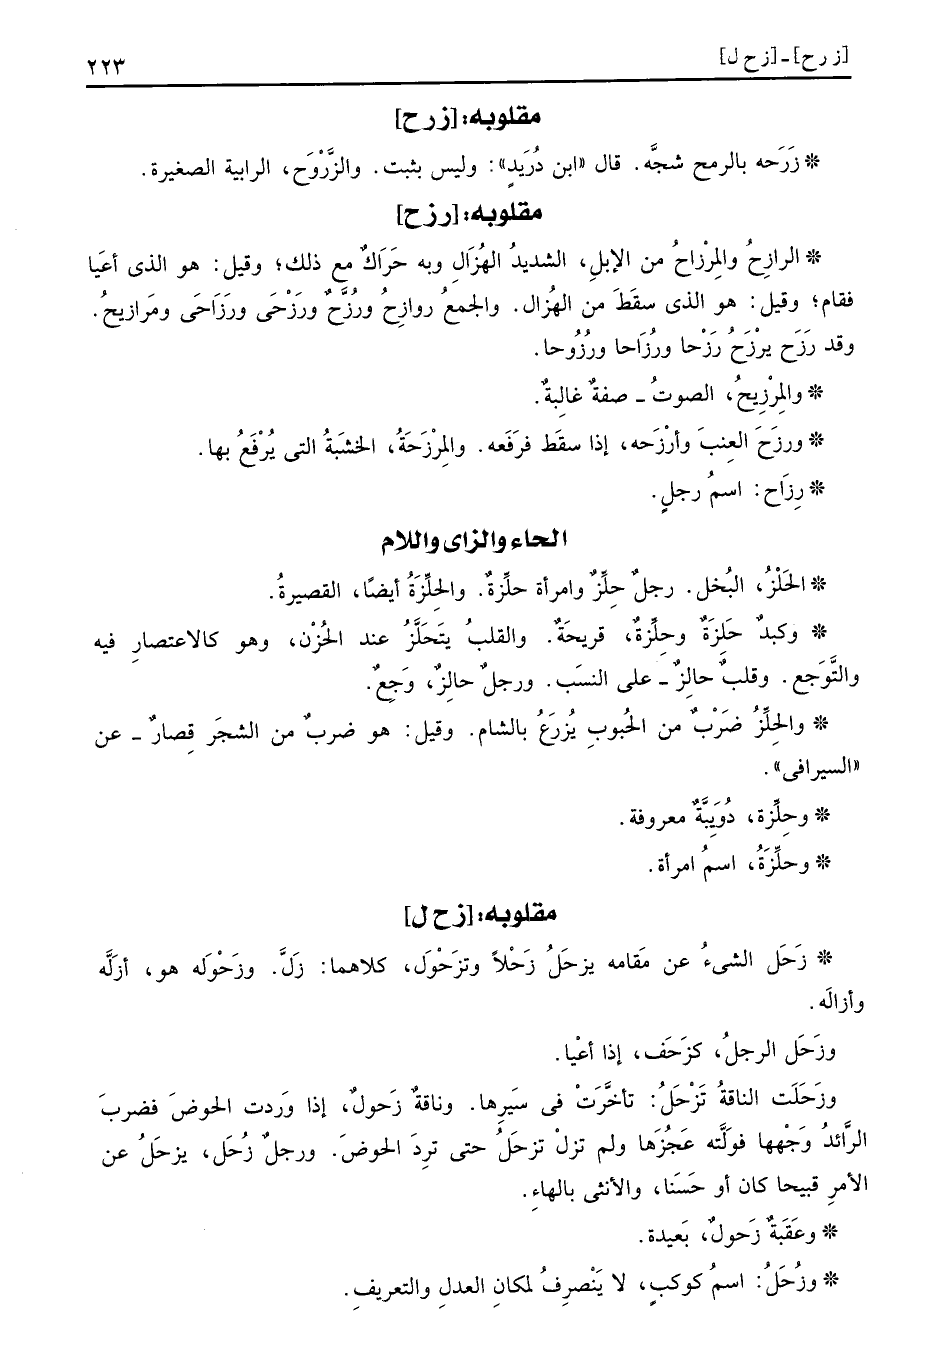 [ز ر ح] ـ [ز ح ل]
٢٢٣
مقلوبه: [ز ر ح]
* زَرَحه بالرمح شجَّه. قال «ابن دُرَيدٍ»: وليس بثبت. والزَّرْوَح، الرابية الصغيرة.
مقلوبه: [ر ز ح]
* الرازِحُ والمِرْزاحُ من الإبلِ، الشديدُ الهُزَالِ وبه حَرَاكٌ مع ذلك؛ وقيل: هو الذى أعَيا
فقام؛ وقيل: هو الذى سقَطَ من الهُزال. والجمعُ روازِحُ ورُزَّحٌ ورَزْحَى ورَزَاحَى ومَرازيحُ.
وقد رَزَح يرْزَحُ رَزْحا ورُزَاحا ورُزُوحا.
* والمِرْزِيحُ، الصوتُ ـ صفةٌ غالِبةٌ.
* ورزَحَ العِنبَ وأرْزَحه، إذا سقَط فرَفَعه. والمِرْزَحَةُ، الخشبَةُ التى يُرْفَعُ بها.
* رِزَاح: اسمُ رجلٍ.
الحاء والزاى واللام
* الحَلْزُ، البُخل. رجلٌ حلِّزٌ وامرأة حلِّزةٌ. والحلِّزَةُ أيضًا، القصيرةُ.
* وكبدٌ حَلِزَةٌ وحلِّزةٌ، قريحَةٌ. والقلبُ يتَحَلَّزُ عند الحُزْن، وهو كالاعتصارِ فيه
والتَّوَجع. وقلبٌ حالِزٌ ـ على النسَب. ورجلٌ حالِزٌ، وَجِعٌ.
* والحلِّزُ ضَرْبٌ من الحُبوبِ يُزرَعُ بالشام. وقيل: هو ضربٌ من الشجَر قِصارٌ ـ عن
«السيرافى».
* وحلِّزة، دُوَيبَّةٌ معروفة.
* وحلِّزَةُ، اسمُ امرأة.
مقلوبه: [ز ح ل]
* زَحَل الشىءُ عن مَقامه يزحَلُ زَحْلاً وتزَحْوَل، كلاهما: زَلَّ. وزحْوَله هو، أزلَّه
وأزالَه.
وزَحَل الرجلُ، كزَحَف، إذا أعْيا.
وزَحَلَت الناقةُ تَزْحَلُ: تأخَّرَتْ فى سَيرِها. وناقةٌ زَحولٌ، إذا وَردت الحوضَ فضربَ
الرَّائدُ وَجْهها فولَّته عَجُزَها ولم تزلْ تزحَلُ حتى ترِدَ الحوضَ. ورجلٌ زُحَل، يزحَلُ عن
الأمرِ قبيحا كان أو حَسَنا، والأنثى بالهاءِ.
* وعَقَبَةٌ زَحولٌ، بَعيدة.
* وزُحَلُ: اسمُ كوكبٍ، لا يَنْصرِفُ لمكانِ العدلِ والتعريفِ.